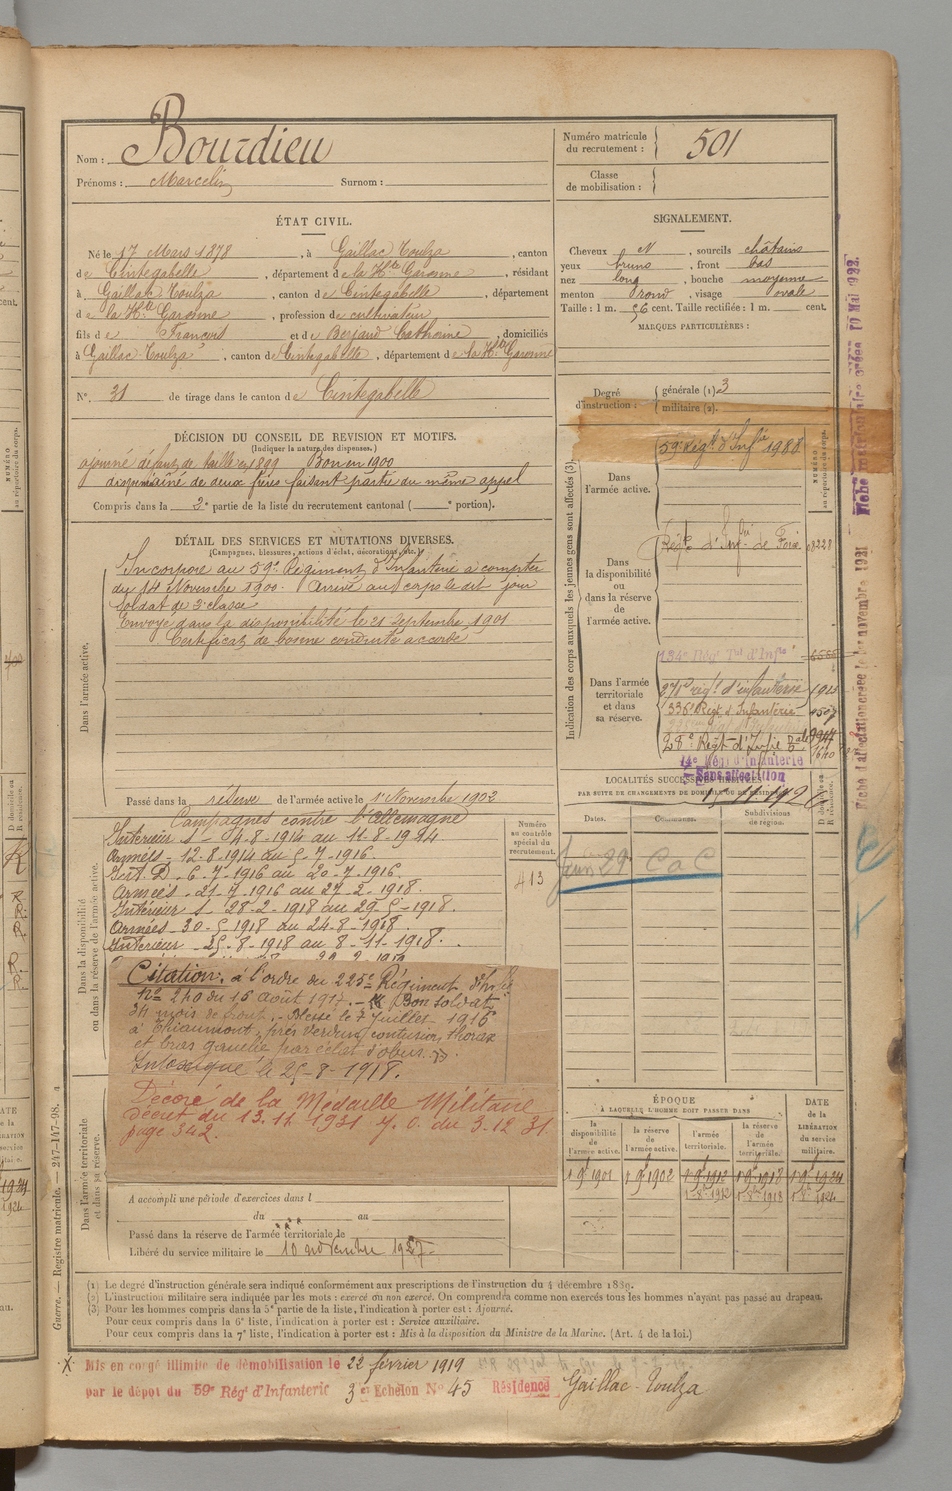 Nom : Bourdieu
Prénoms : Marcelin Surnom :
Numéro matricule
du recrutement : 501
Classe
de mobilisation :
ÉTAT CIVIL.
Né le 17 Mars 1878, à Gaillac Toulza, canton
de Cintegabelle, département de la Hte Garonne, résidant
à Gaillac Toulza, canton de Cintegabelle, département
de la Hte Garonne, profession de cultivateur
fils de François et de Berjaud Catherine, domiciliés
à Gaillac Toulza, canton de Cintegabelle, département de la Hte Garonne
N° 31 de tirage dans le canton de Cintegabelle
SIGNALEMENT.
Cheveux N, sourcils châtains
yeux bruns, front bas
nez long, bouche moyenne
menton rond, visage ovale
Taille : 1 m. 56 cent. Taille rectifiée : 1 m. cent.
MARQUES PARTICULIÈRES :
Degré
d'instruction :
générale (1) 3
militaire (2).
DÉCISION DU CONSEIL DE REVISION ET MOTIFS.
(Indiquer la nature des dispenses.)
ajourné défaut de taille en 1899 Bon en 1900
de deux frères faisant partie du même appel
Compris dans la 2e partie de la liste du recrutement cantonal ( e portion).
DÉTAIL DES SERVICES ET MUTATIONS DIVERSES.
(Campagnes, blessures, actions d'éclat, décorations, etc.)
Dans l'armée active.
Incorporé au 59e Régiment d'Infanterie à compter
du 14 Novembre 1900. Arrivé au corps le dit jour
Soldat de 2e classe
Envoyé dans la disponibilité le 21 Septembre 1901
Certificat de bonne conduite accordé
Passé dans la réserve de l'armée active le 1er Novembre 1902
Indication des corps auxquels les jeunes gens sont affectés (3)
NUMÉRO
au répertoire du corps.
Dans
l'armée active.
59e Régt d'Infie 1988
Dans
la disponibilité
ou dans la réserve
de l'armée active.
Régt d'Infrie de Foix 03228
Dans l'armée
territoriale
et dans
sa réserve.
134e Régt Tal d'Infie
271e régt d'infanterie
336e Régt d'Infanterie
28e Régt d'Infie
14e Régt d'Infanterie
Sans affectation
Fiche d'affectation créée le 1er novembre 1921
10 Mai 1922.
LOCALITÉS SUCCESSIVES HABITÉES
PAR SUITE DE CHANGEMENTS DE DOMICILE OU DE RÉSIDENCE.
Dates.
Communes.
Subdivisions
de région.
D domicile ou
R résidence.
C a C
Numéro
au contrôle
spécial du
recrutement.
413
Dans la disponibilité
ou dans la réserve de l'armée active.
Campagnes contre l'Allemagne
Intérieur S - 4-8-1914 au 11-8-1914
Armées - 12-8-1914 au 5-7-1916.
Int. D - 6-7-1916 au 20-7-1916.
Armées - 21-7-1916 au 27-2-1918.
Intérieur S - 28-2-1918 au 29-5-1918.
Armées - 30-5-1918 au 24-8-1918.
Intérieur - 25-8-1918 au 8-11-1918.
Citation : à l'ordre du 225e Régiment d'Infie
No 240 du 15 août 1917. - Bon soldat
34 mois de front. - Blessé le 7 Juillet 1916
à Thiaumont, près Verdun, contusion thorax
et bras gauche par éclat d'obus.
Intoxiqué le 25-8-1918.
Décoré de la Médaille Militaire
décret du 13.11 1931 J. O. du 3.12 31.
page 342.
Dans l'armée territoriale
et dans sa réserve.
A accompli une période d'exercices dans l
du au
Passé dans la réserve de l'armée territoriale le
Libéré du service militaire le 10 novembre 1927
ÉPOQUE
À LAQUELLE L'HOMME DOIT PASSER DANS
DATE
de la
LIBÉRATION
du service
militaire.
la
disponibilité
de
l'armée active.
la
réserve
de
l'armée active.
l'armée
territoriale.
la
réserve
de l'armée
territoriale.
1 9bre 1901 1 9bre 1902 1 9bre 1912 1 9bre 1918 1 9bre 1924
(1) Le degré d'instruction générale sera indiqué conformément aux prescriptions de l'instruction du 4 décembre 1889.
(2) L'instruction militaire sera indiquée par les mots : exercé ou non exercé. On comprendra comme non exercés tous les hommes n'ayant pas passé au drapeau.
(3) Pour les hommes compris dans la 5e partie de la liste, l'indication à porter est : Ajourné.
Pour ceux compris dans la 6e liste, l'indication à porter est : Service auxiliaire.
Pour ceux compris dans la 7e liste, l'indication à porter est : Mis à la disposition du Ministre de la Marine. (Art. 4 de la loi.)
Guerre. — Registre matricule. — 247-147-98.
Mis en congé illimité de démobilisation le 22 février 1919
par le dépôt du 59e Régt d'Infanterie 3e Echelon No 45 Résidence Gaillac-Toulza